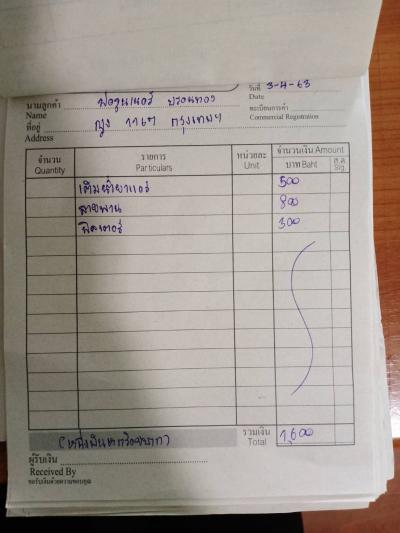 วันที่ 3-4-63
Date
นามลูกค้า
Name
ทะเบียนการค้า
Commercial Registration
ที่อยู่ กรุงเทพฯ
Address
จำนวน รายการ หน่วยละ จำนวนเงิน Amount
Quantity Particulars Unit บาท Baht ส.ต. Stg.
เติมน้ำยาแอร์ 500
สายพาน 800
300
รวมเงิน 1,600
(หนึ่งพันหกร้อยบาท) Total
ผู้รับเงิน
Received By
ขอรับเงินด้วยความขอบคุณ